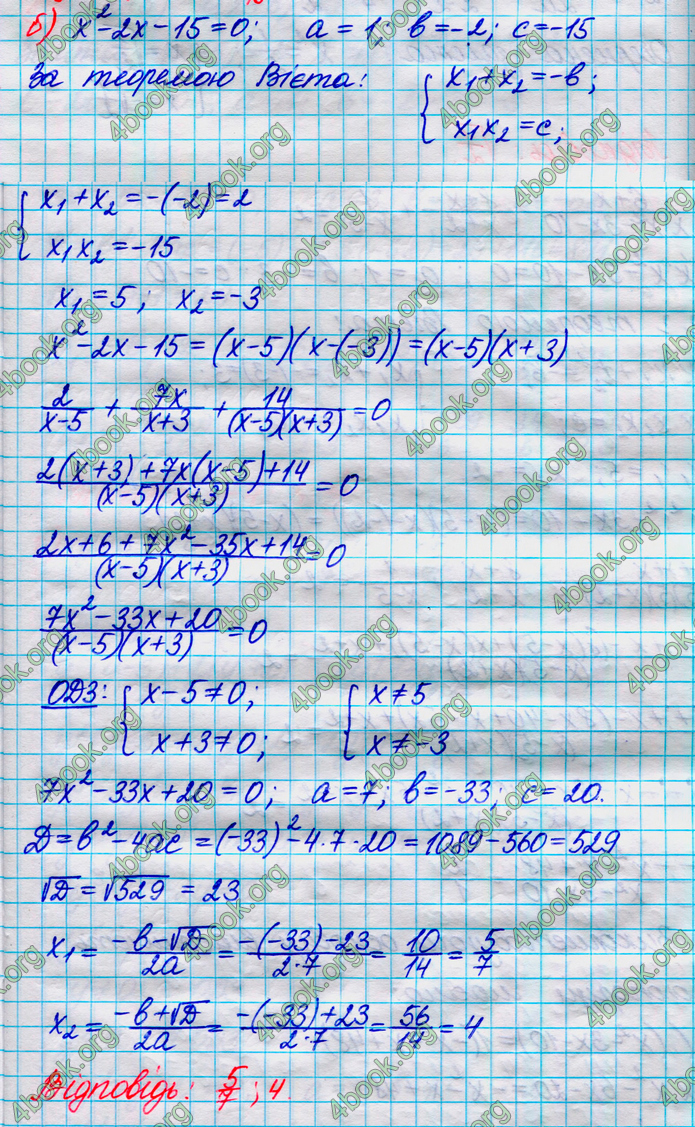 б) x²-2x-15=0; a=1; в=-2; c=-15
За теоремою Вієта: { x₁+x₂=-в;
x₁x₂=c;
{ x₁+x₂=-(-2)=2
x₁x₂=-15
x₁=5; x₂=-3
x²-2x-15=(x-5)(x-(-3))=(x-5)(x+3)
2/(x-5) + 7x/(x+3) + 14/((x-5)(x+3)) =0
(2(x+3)+7x(x-5)+14)/((x-5)(x+3)) =0
(2x+6+7x²-35x+14)/((x-5)(x+3)) =0
(7x²-33x+20)/((x-5)(x+3)) =0
ОДЗ: { x-5≠0; { x≠5
x+3≠0; x≠-3
7x²-33x+20=0; a=7; в=-33; c=20.
Д=в²-4ac=(-33)²-4·7·20=1089-560=529
√Д=√529=23
x₁= (-в-√Д)/2a = (-(-33)-23)/(2·7) = 10/14 = 5/7
x₂= (-в+√Д)/2a = (-(-33)+23)/(2·7) = 56/14 =4
Відповідь: 5/7; 4.
4book.org